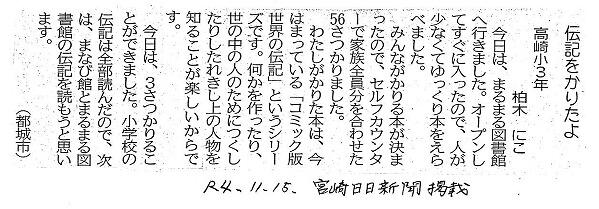 伝記をかりたよ
高崎小3年
柏木 にこ
今日は、まるまる図書館
へ行きました。オープンし
てすぐに入ったので、人が
少なくてゆっくり本をえら
べました。
みんながかりる本が決ま
ったので、セルフカウンタ
ーで家族全員分を合わせた
56さつかりました。
わたしがかりた本は、今
はまっている「コミック版
世界の伝記」というシリー
ズです。何かを作ったり、
世の中の人のためにつくし
たりしたれきし上の人物を
知ることが楽しいからで
す。
今日は、3さつかりるこ
とができました。小学校の
伝記は全部読んだので、次
は、まなび館とまるまる図
書館の伝記を読もうと思い
ます。
（都城市）
R4.11.15. 宮崎日日新聞掲載